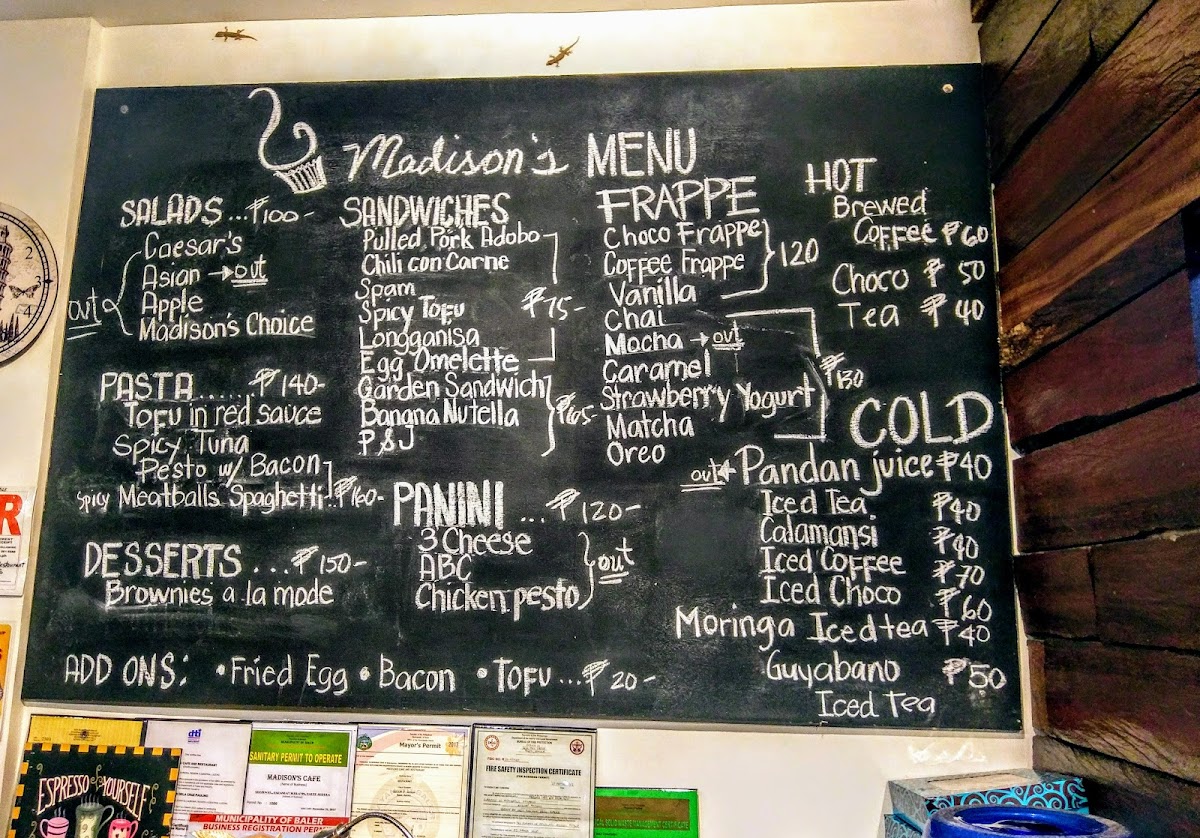 Madison's MENU
SALADS ... ₱100-
Caesar's
Asian → out
Apple
Madison's Choice
out
PASTA ...... ₱140-
Tofu in red sauce
Spicy Tuna
Pesto w/ Bacon
Spicy Meatballs Spaghetti.. ₱160-
DESSERTS ... ₱150-
Brownies a la mode
SANDWICHES
Pulled Pork Adobo
Chili con Carne
Spam
Spicy Tofu ₱75-
Longganisa
Egg Omelette
Garden Sandwich
Banana Nutella
P & J
PANINI ... ₱120-
3 Cheese
ABC
Chicken pesto
out
FRAPPE
Choco Frappe
Coffee Frappe 120
Vanilla
Chai
Mocha → out
Caramel ₱130
Strawberry Yogurt
Matcha
Oreo
HOT
Brewed
Coffee ₱60
Choco ₱50
Tea ₱40
COLD
out ← Pandan juice ₱40
Iced Tea ₱40
Calamansi ₱40
Iced Coffee ₱70
Iced Choco ₱60
Moringa Iced tea ₱40
Guyabano ₱50
Iced Tea
ADD ONS: • Fried Egg • Bacon • Tofu ... ₱20-
ESPRESSO YOURSELF
dti
SANITARY PERMIT TO OPERATE
MADISON'S CAFE
MUNICIPALITY OF BALER
BUSINESS REGISTRATION PERMIT
Mayor's Permit 2017
FIRE SAFETY INSPECTION CERTIFICATE